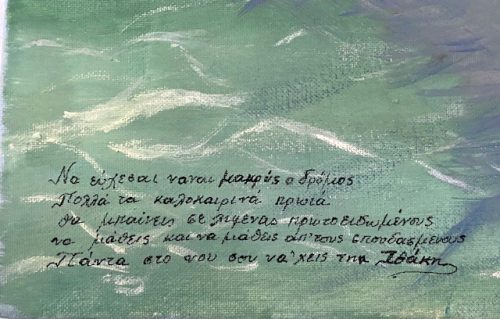 Να εύχεσαι νάναι μακρύς ο δρόμος
Πολλά τα καλοκαιρινά πρωϊά
θα μπαίνεις σε λιμένας πρωτοειδωμένους
να μάθεις και να μάθεις απ' τους σπουδασμένους
Πάντα στο νου σου να 'χεις την Ιθάκη